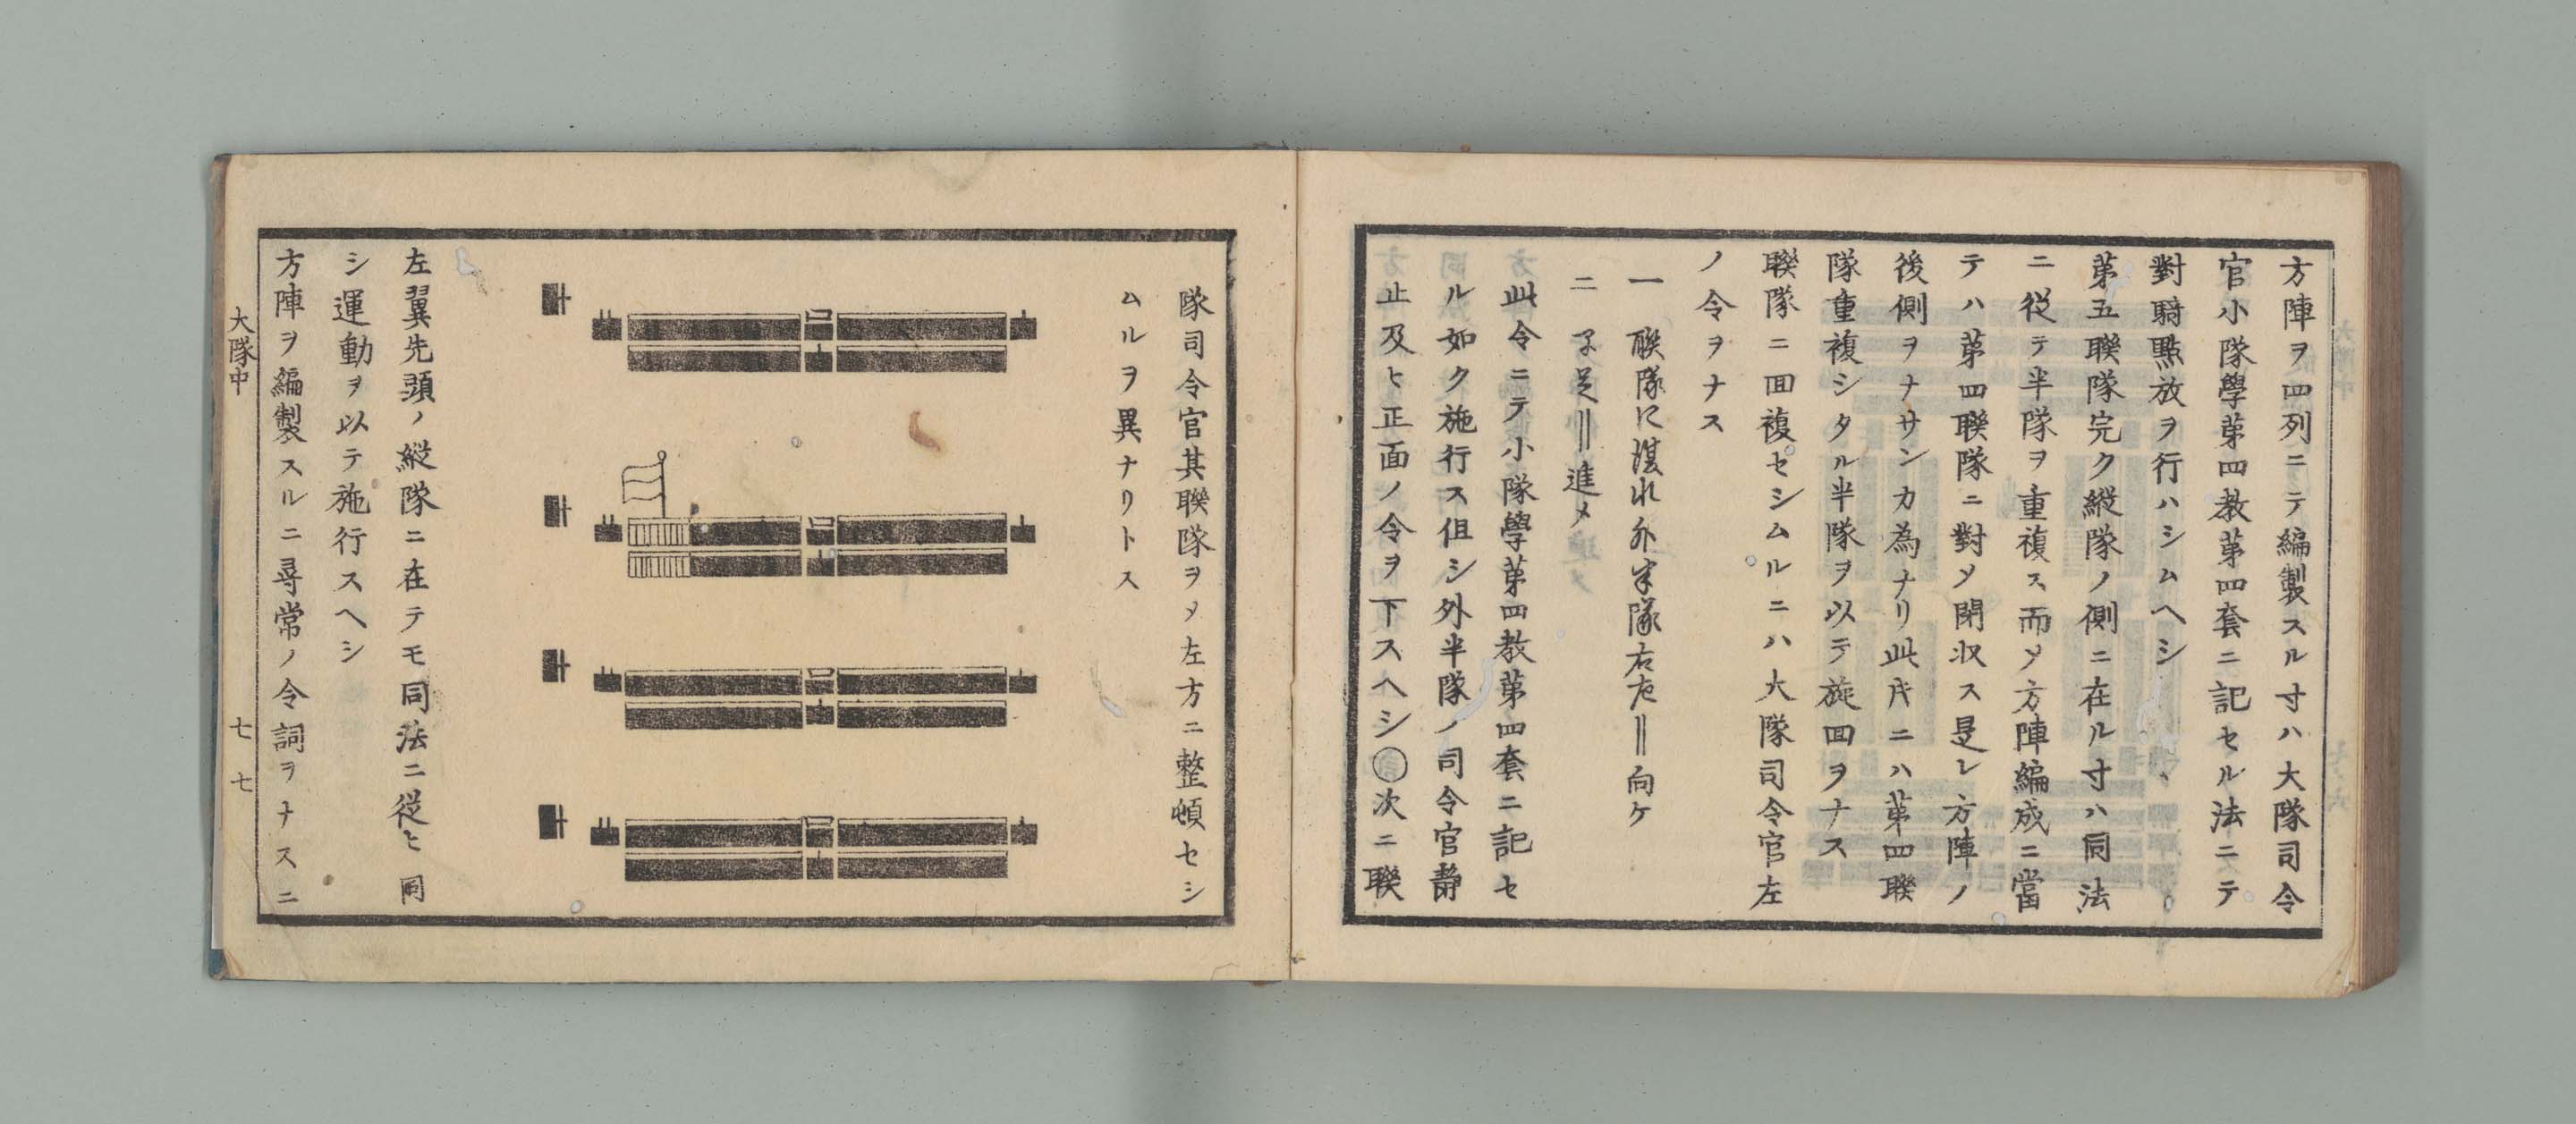 方陣ヲ四列ニテ編製スル寸ハ大隊司令
官小隊學苐四教苐四套ニ記セル法ニテ
對騎點放ヲ行ハシムヘシ
苐五聯隊完ク縱隊ノ側ニ在ル寸ハ同法
ニ従テ半隊ヲ重複ス而〆方陣編成ニ當
テハ苐四聯隊ニ對〆閉収ス是レ方陣ノ
後側ヲナサンカ為ナリ此時ニハ苐四聯
隊重複シタル半隊ヲ以テ旋回ヲナス
聯隊ニ回複セシムルニハ大隊司令官左
ノ令ヲナス
一 聯隊に復れ外半隊右左‖向ケ
二 早足‖進メ
此令ニテ小隊學苐四教苐四套ニ記セ
ル如ク施行ス但シ外半隊ノ司令官静
止及ヒ正面ノ令ヲ下スヘシ○次ニ聯
隊司令官其聯隊ヲ〆左方ニ整頓セシ
ムルヲ異ナリトス
左翼先頭ノ縱隊ニ在テモ同法ニ従ヒ同
シ運動ヲ以テ施行スヘシ
方陣ヲ編製スルニ尋常ノ令詞ヲナスニ
大隊中 七七